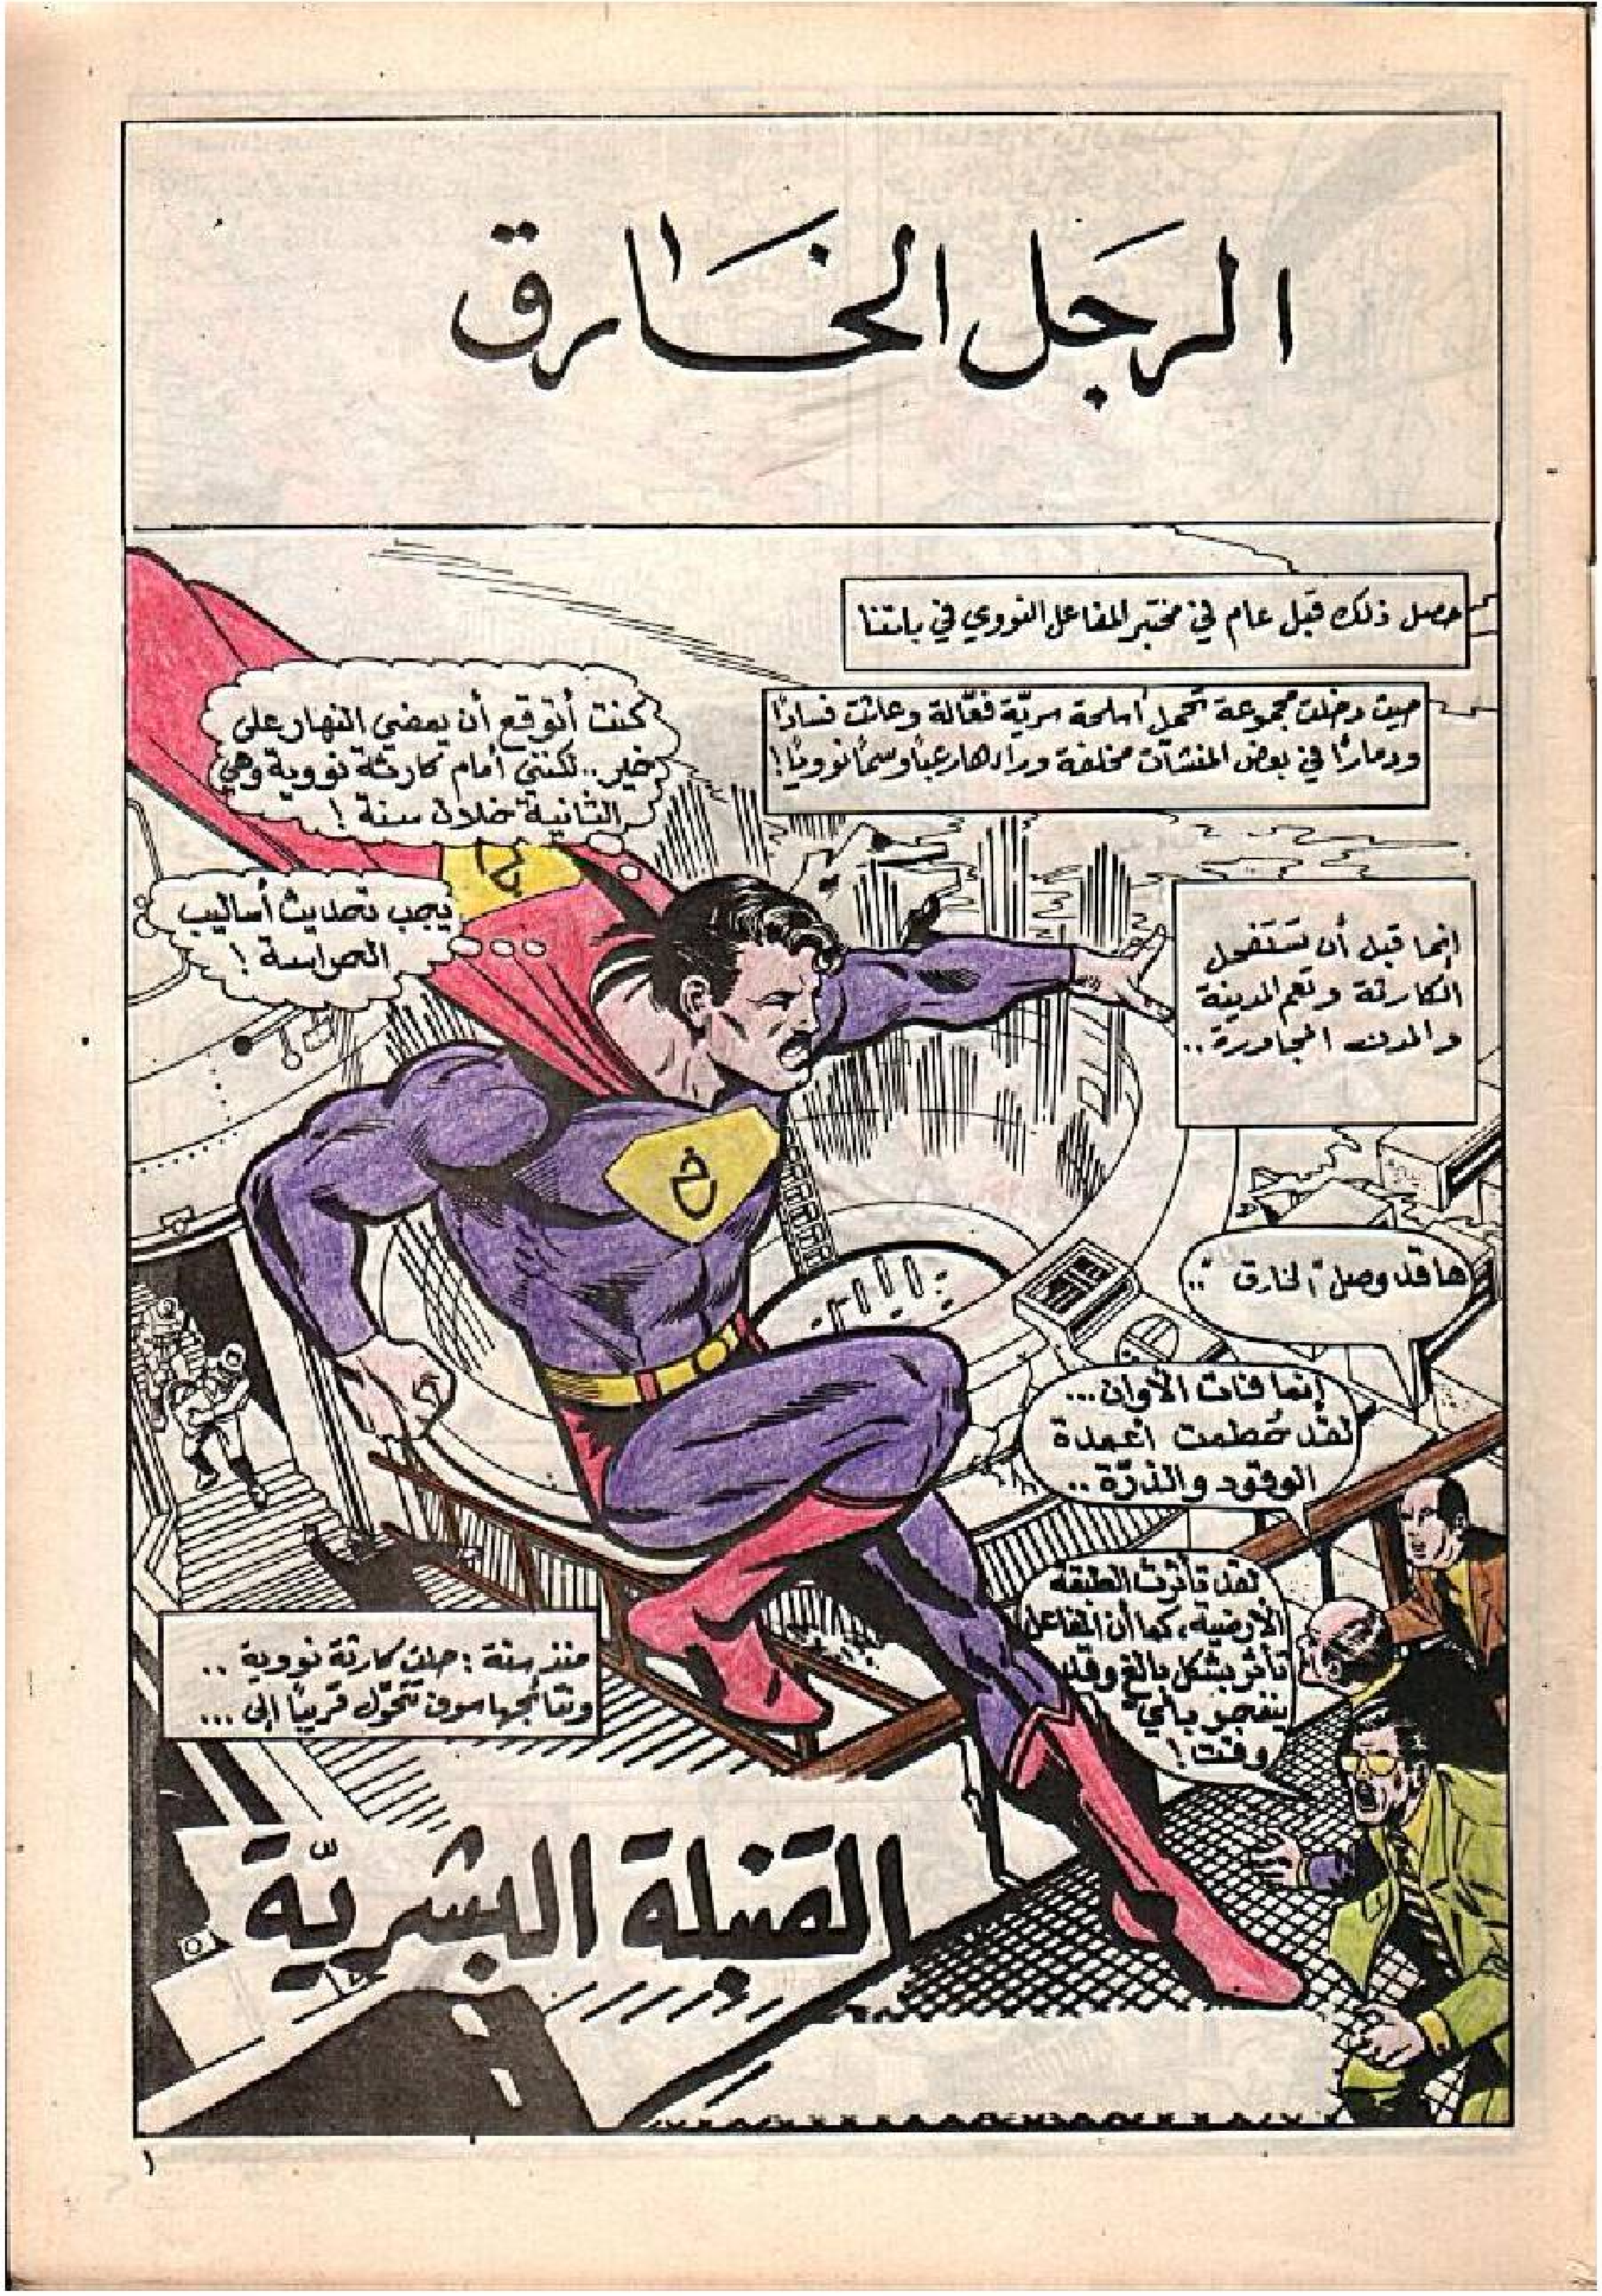 الرجل الخارق
حصل ذلك قبل عام في مختبر المفاعل النووي في بلدتنا
حيث دخلت مجموعة تحمل أسلحة سريّة فعّالة وعاثت فسادًا
ودمارًا في بعض المنشآت مخلفة وراءها رعبًا وسمًا نوويًا!
كنت أتوقع أن يمضي النهار على
خير.. لكنني أمام كارثة نووية وهي
الثانية خلال سنة!
يجب تحديث أساليب
الحراسة!
إنما قبل أن تستفحل
الكارثة وتعم المدينة
والمدن المجاورة..
خ
ها قد وصل "الخارق"..
إنما فات الأوان...
لقد حُطمت أعمدة
الوقود والذرّة..
لقد تأثرت الطبقة
الأرضية، كما أن المفاعل
تأثر بشكل بالغ وقد
ينفجر بأي
وقت!
منذ سنة: حلت كارثة نووية..
ونتائجها سوف تتحوّل قريبًا إلى...
القنبلة البشريّة
١